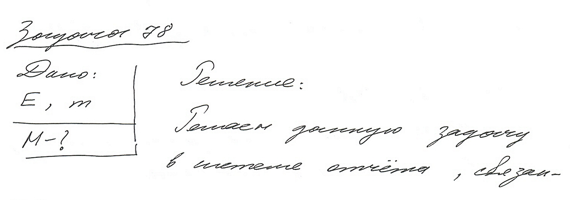 Задача 78
Дано:
E, m
M-?
Решение:
Решаем данную задачу
в системе отсчёта, связан-